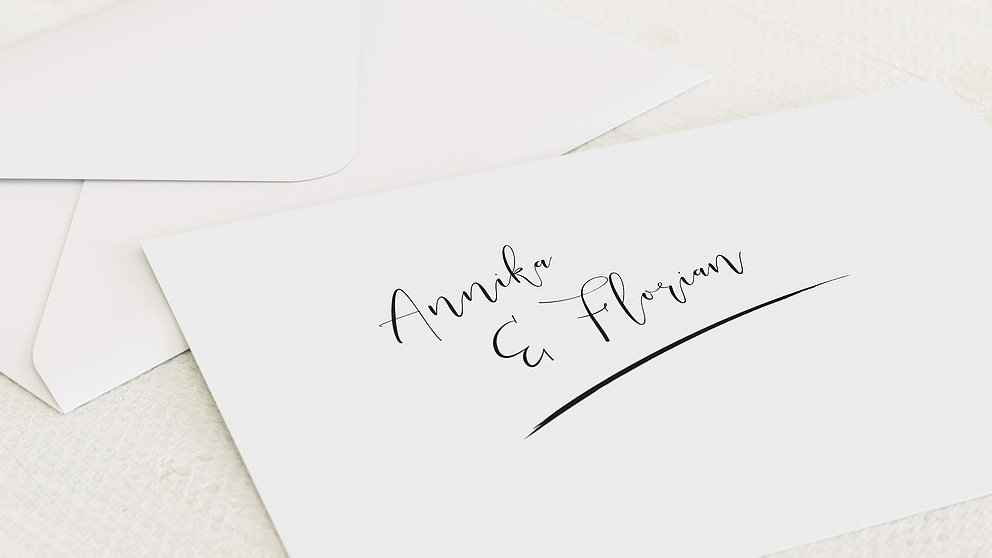 Annika
& Florian